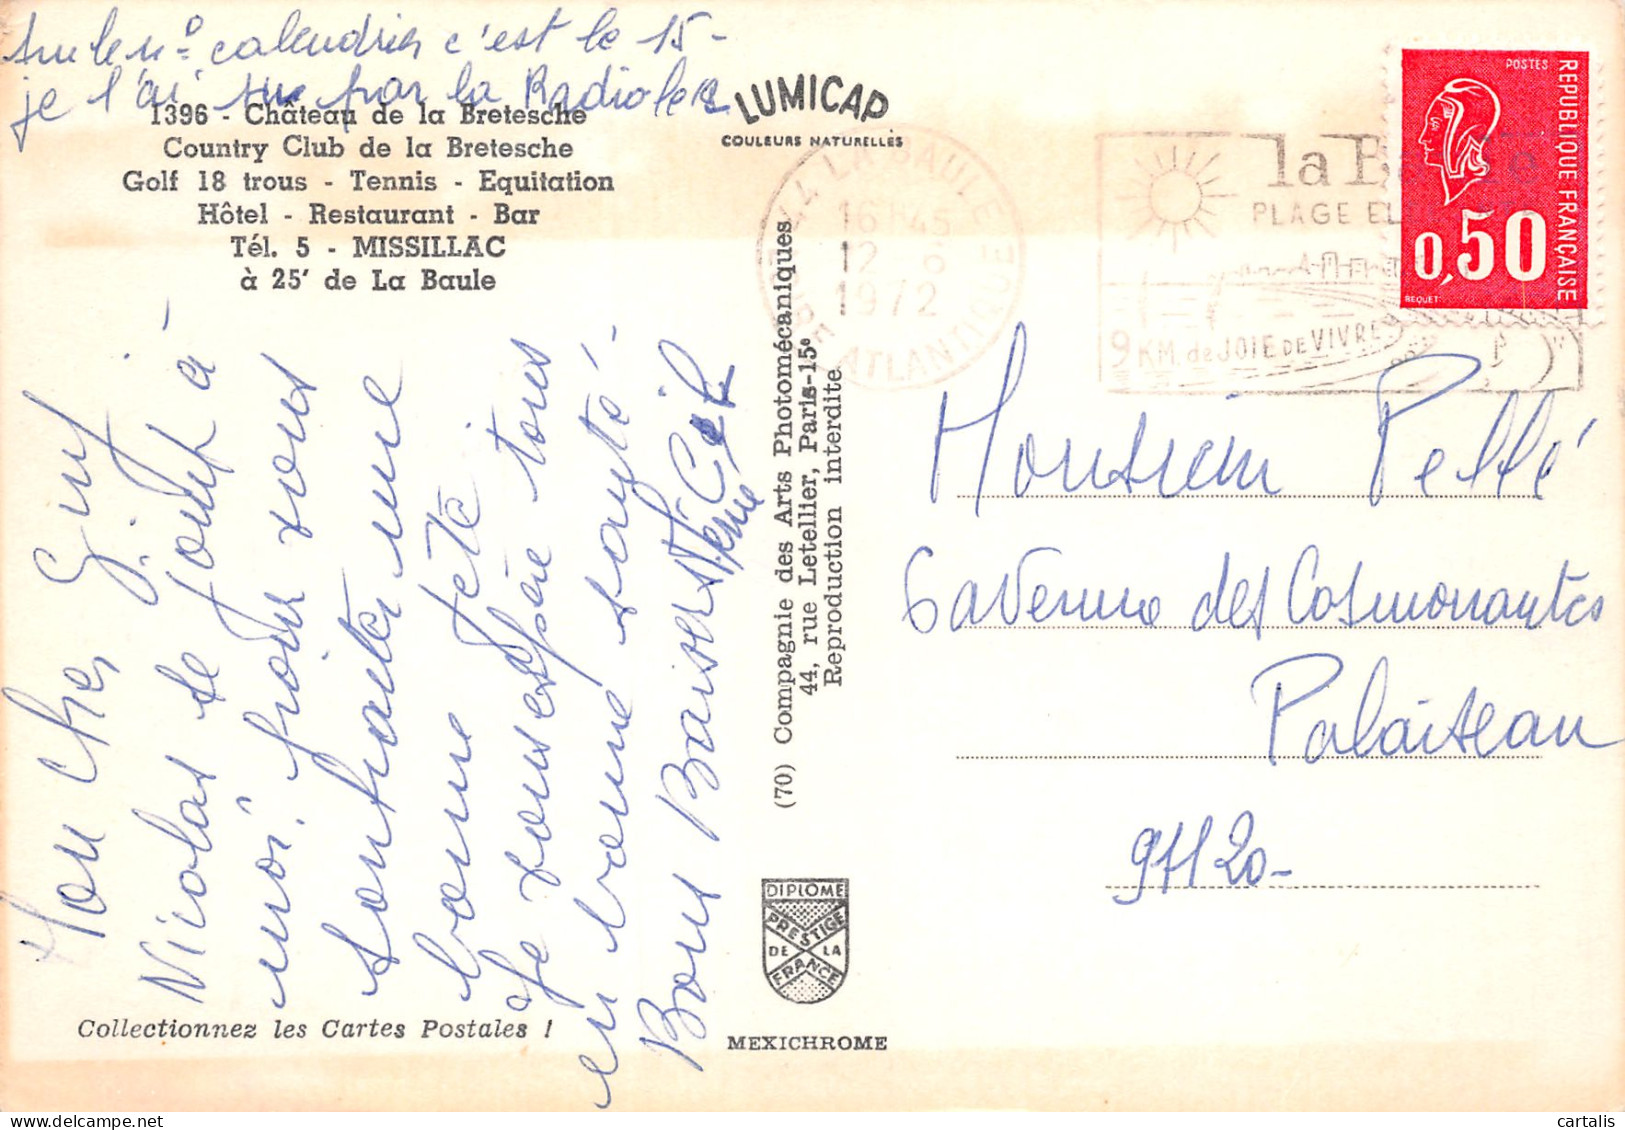 Sur le n° calendrier c'est le 15-
je l'ai su par la Radio le 12
1396 - Château de la Bretesche
Country Club de la Bretesche
Golf 18 trous - Tennis - Equitation
Hôtel - Restaurant - Bar
Tél. 5 - MISSILLAC
à 25' de La Baule
LUMICAP
COULEURS NATURELLES
Mon Cher
Nicolas se joint à
moi pour vous
souhaiter une
bonne fête
Je vous espère tous
en bonne santé -
Bons Baisers
Collectionnez les Cartes Postales !
(70) Compagnie des Arts Photomécaniques
44, rue Letellier, Paris-15e
Reproduction interdite
DIPLOME
PRESTIGE
DE LA
FRANCE
MEXICHROME
44 LA BAULE
16H45
12
1972
LOIRE ATLANTIQUE
la Baule
PLAGE EL
9 KM. de JOIE DE VIVRE
POSTES
REPUBLIQUE FRANÇAISE
0,50
BEQUET
Monsieur Pellé
6 avenue des Cosmonautes
Palaiseau
91120-
cartalis